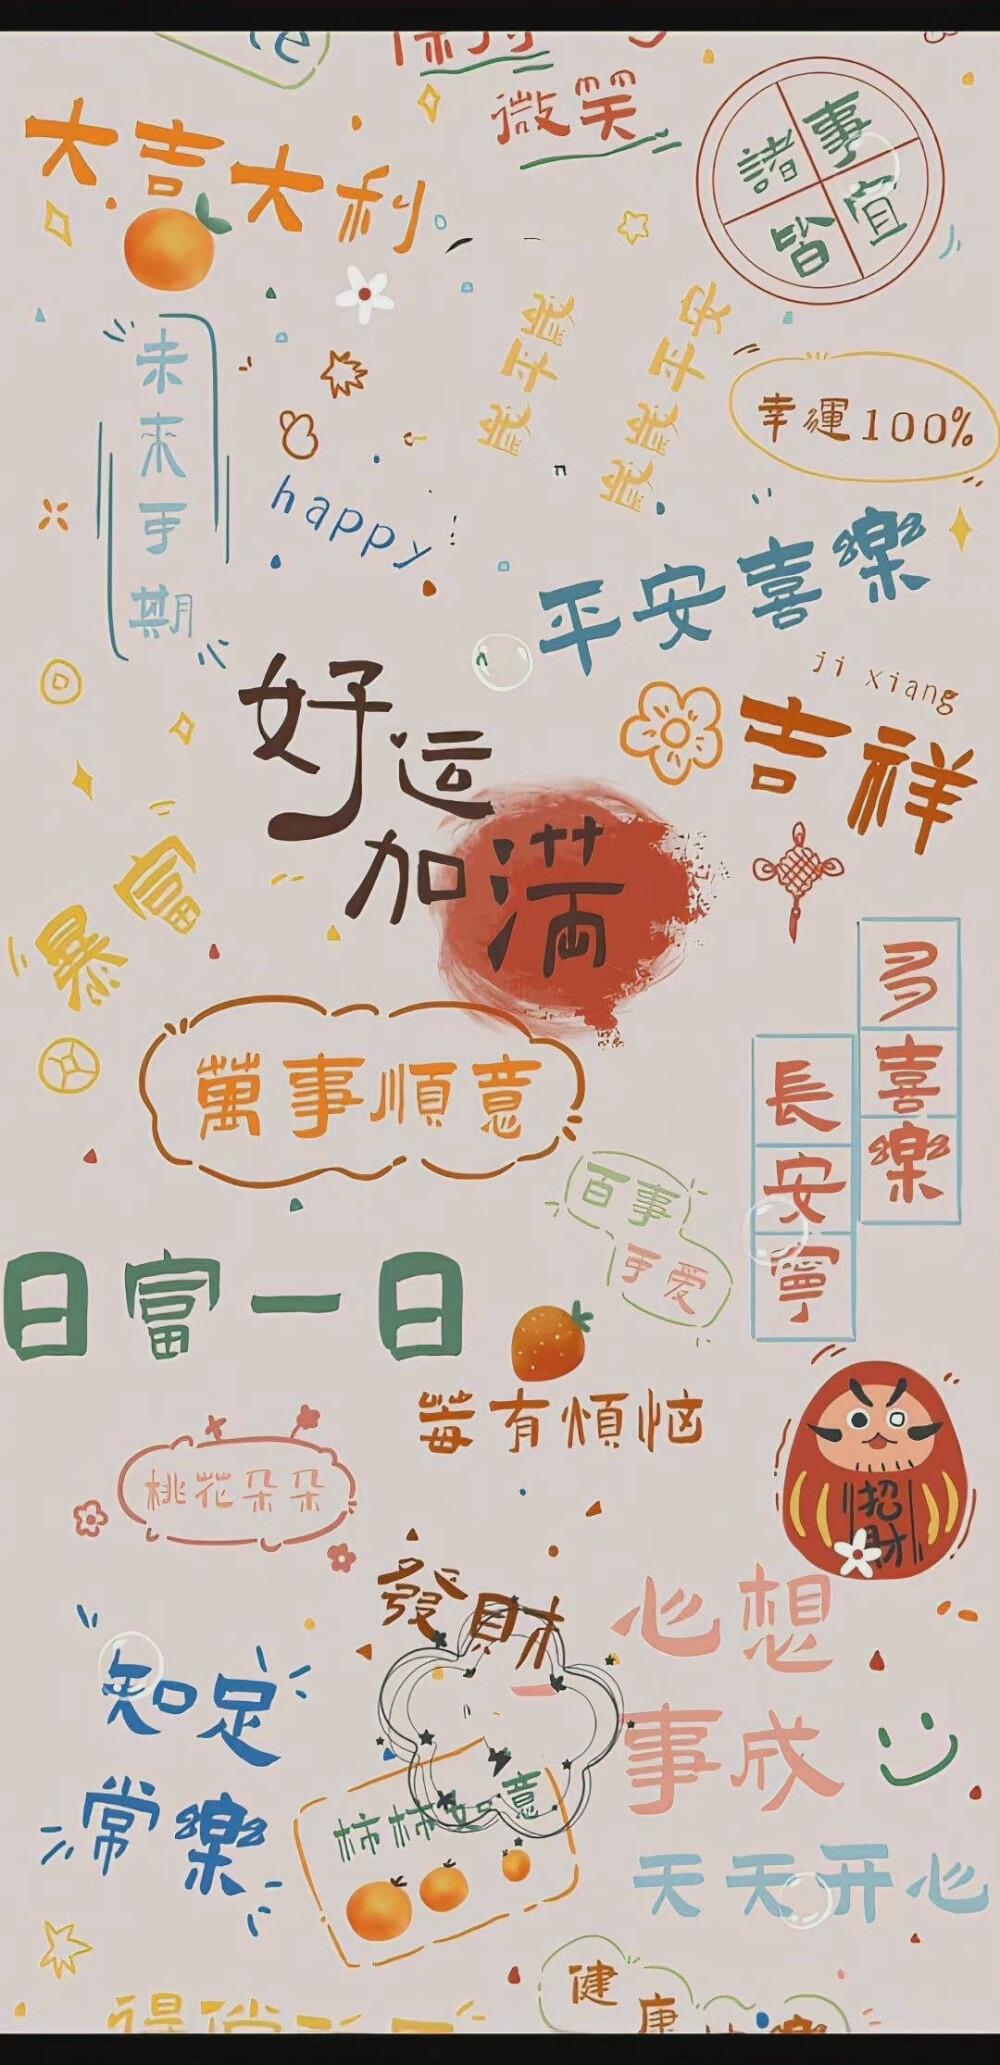 保持
微笑
大吉大利
諸事
皆宜
未来可期
歲平歲
歲歲平安
幸運100%
happy
平安喜樂
ji xiang
吉祥
好运
加满
暴富
萬事順意
多喜樂
長安寧
百事
可爱
日富一日
莓有煩恼
桃花朵朵
招財
發財
心想
事成
知足
常樂
柿柿如意
天天开心
健康